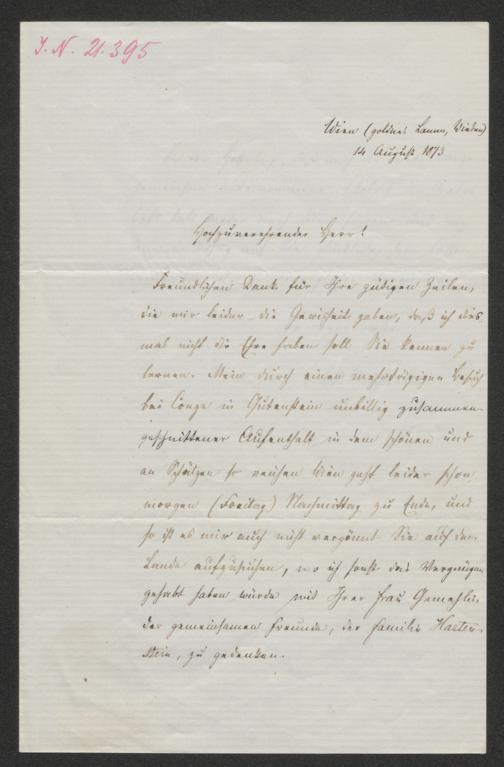 I. N. 21.395
Wien (goldnes Lamm, Wieden)
14 August 1873
Hochzuverehrender Herr!
Freundlichen Dank für Ihre gütigen Zeilen,
die mir leider die Gewisheit gaben, daß ich dies
mal nicht die Ehre haben soll Sie kennen zu
lernen. Mein durch einen mehrtägigen Besuch
bei Conze in Gutenstein unbillig zusammen-
geschnittener Aufenthalt in dem schönen und
an Schätzen so reichen Wien geht leider schon
morgen (Freitag) Nachmittag zu Ende, und
so ist es mir auch nicht vergönnt Sie auf dem
Lande aufzusuchen, wo ich sonst das Vergnügen
gehabt haben würde mit Ihrer Frau Gemahlin
der gemeinsamen Freunde, der Familie Harten-
stein, zu gedenken.